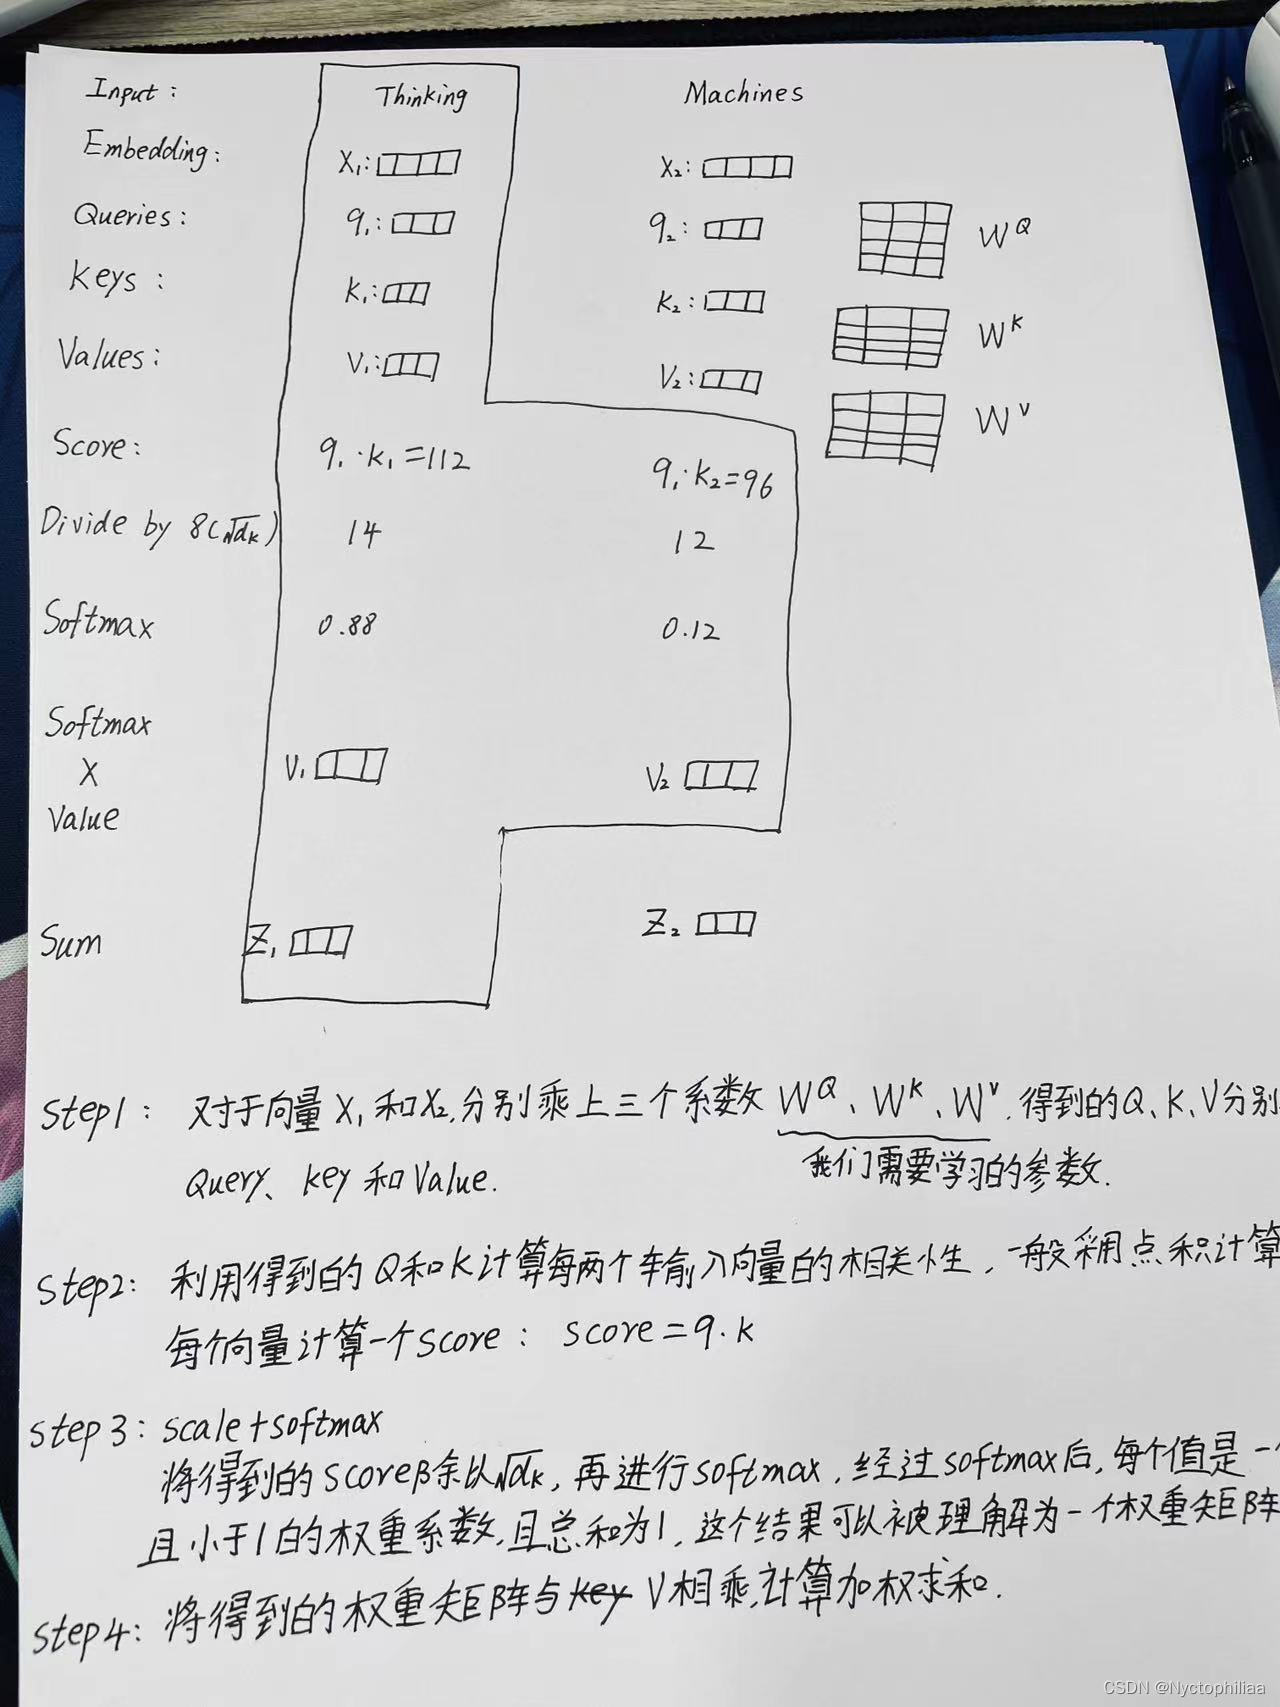 Input: Thinking Machines
Embedding: X₁: X₂:
Queries: q₁: q₂: W^Q
Keys: K₁: K₂: W^K
Values: V₁: V₂: W^V
Score: q₁·K₁=112 q₁·K₂=96
Divide by 8(√dk) 14 12
Softmax 0.88 0.12
Softmax
X V₁ V₂
Value
Sum Z₁ Z₂
Step1: 对于向量X₁和X₂,分别乘上三个系数W^Q、W^K、W^V,得到的Q、K、V分别
Query、key和Value.
我们需要学习的参数.
Step2: 利用得到的Q和K计算每两个输入向量的相关性,一般采用点积计算
每个向量计算一个score: score=q·k
Step3: scale+softmax
将得到的score除以√dk,再进行softmax,经过softmax后,每个值是一
且小于1的权重系数,且总和为1,这个结果可以被理解为一个权重矩阵
Step4: 将得到的权重矩阵与key V相乘,计算加权求和.
CSDN @Nyctophiliaa